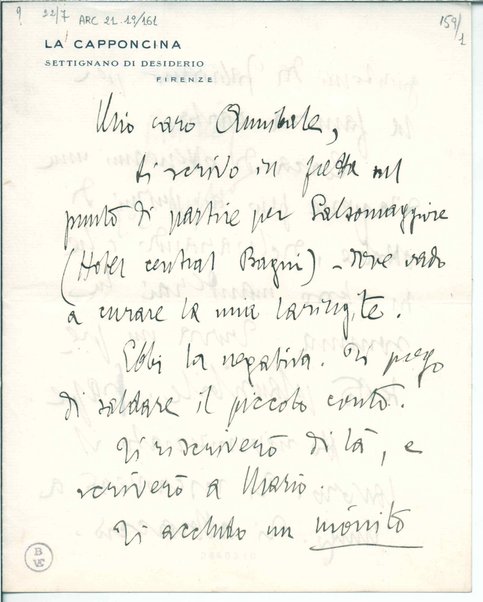 9 22/7 ARC 21.19/161
159/1
LA CAPPONCINA
SETTIGNANO DI DESIDERIO
FIRENZE
Mio caro Annibale,
ti scrivo in fretta nel
punto di partire per Salsomaggiore
(Hotel central Bagni) – dove vado
a curare la mia laringite.
Ebbi la negativa. Ti prego
di saldare il piccolo conto.
Ti riscriverò di là, e
scriverò a Mario.
Ti accludo un mònito